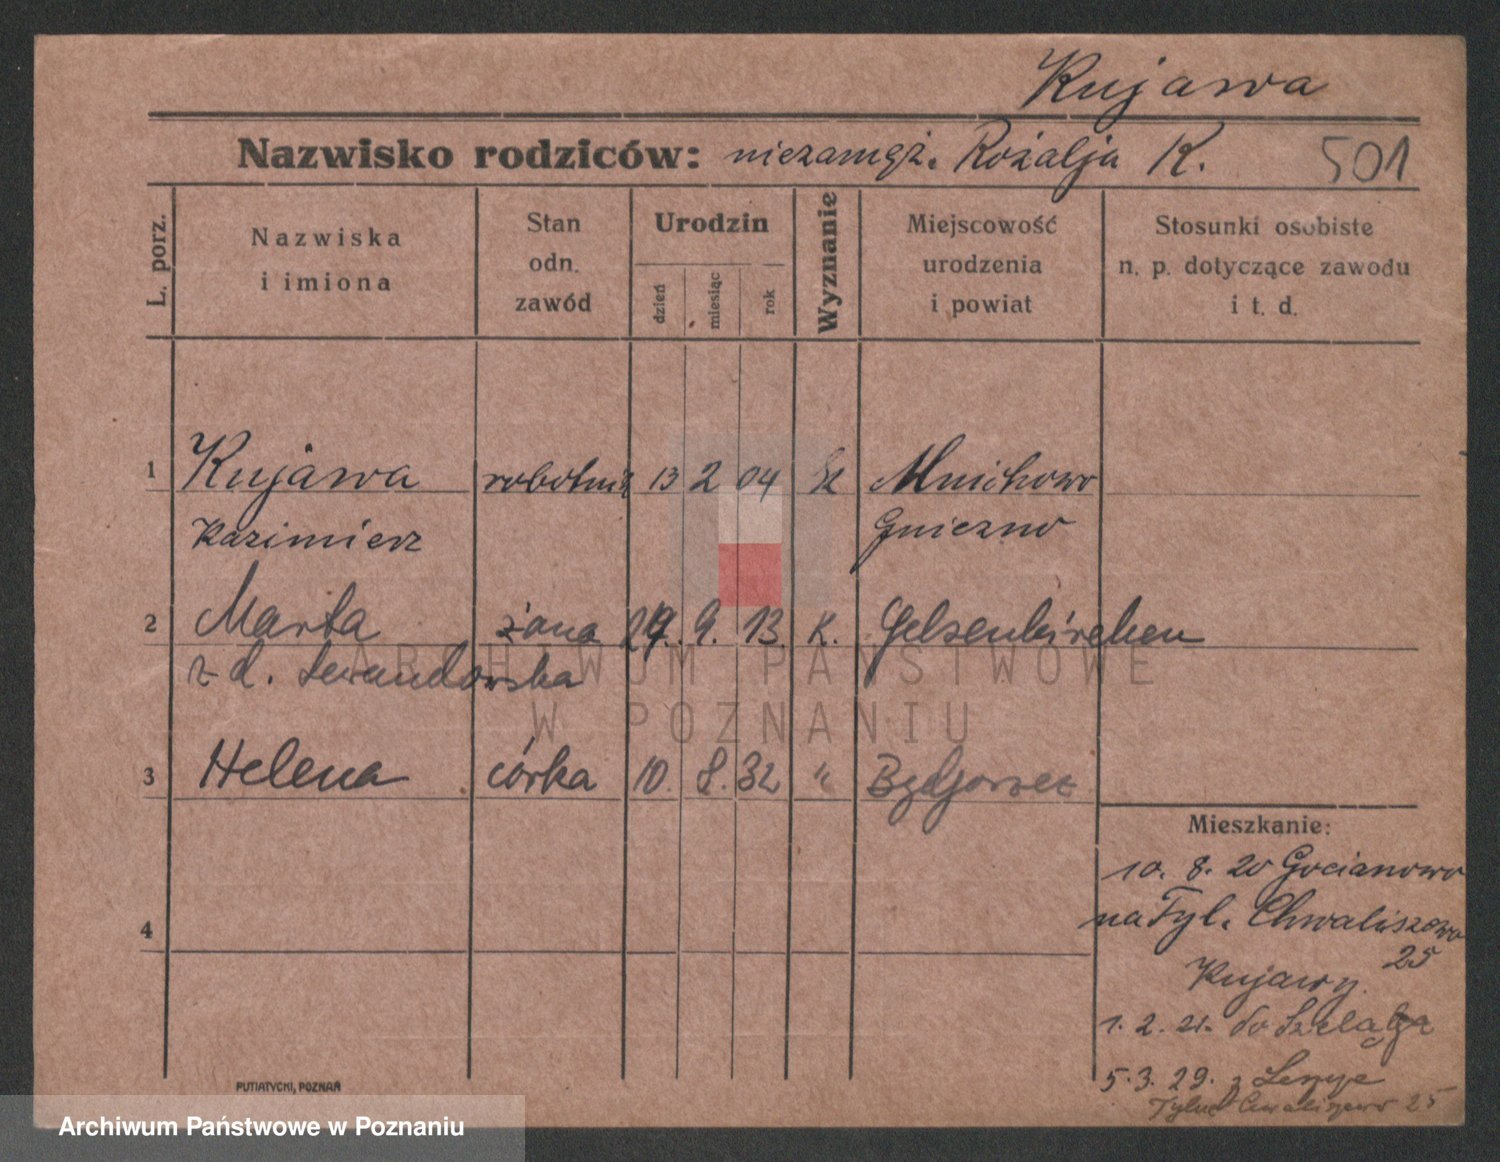 Kujawa
Nazwisko rodziców: niezamęż. Rozalja K. 501
L. porz.
Nazwiska
i imiona
Stan
odn.
zawód
Urodzin
dzień
miesiąc
rok
Wyznanie
Miejscowość
urodzenia
i powiat
Stosunki osobiste
n. p. dotyczące zawodu
i t. d.
1 Kujawa robotnik 13 2 04 Mnichowo
Kazimierz Gniezno
2 Marta żona 9. 13. K. Gelsenkirchen
z d. Lewandowska
ARCHIWUM PAŃSTWOWE
W POZNANIU
3 Helena córka 10. 8. 32 " Bydgoszcz
Mieszkanie:
10. 8. 20 Gocianowo
na Tyl. Chwaliszewo
25
4
Kujawy.
1. 2. 21. do
5. 3. 29. z
Tylne Chwaliszewo 25
PUTIATYCKI, POZNAŃ
Archiwum Państwowe w Poznaniu